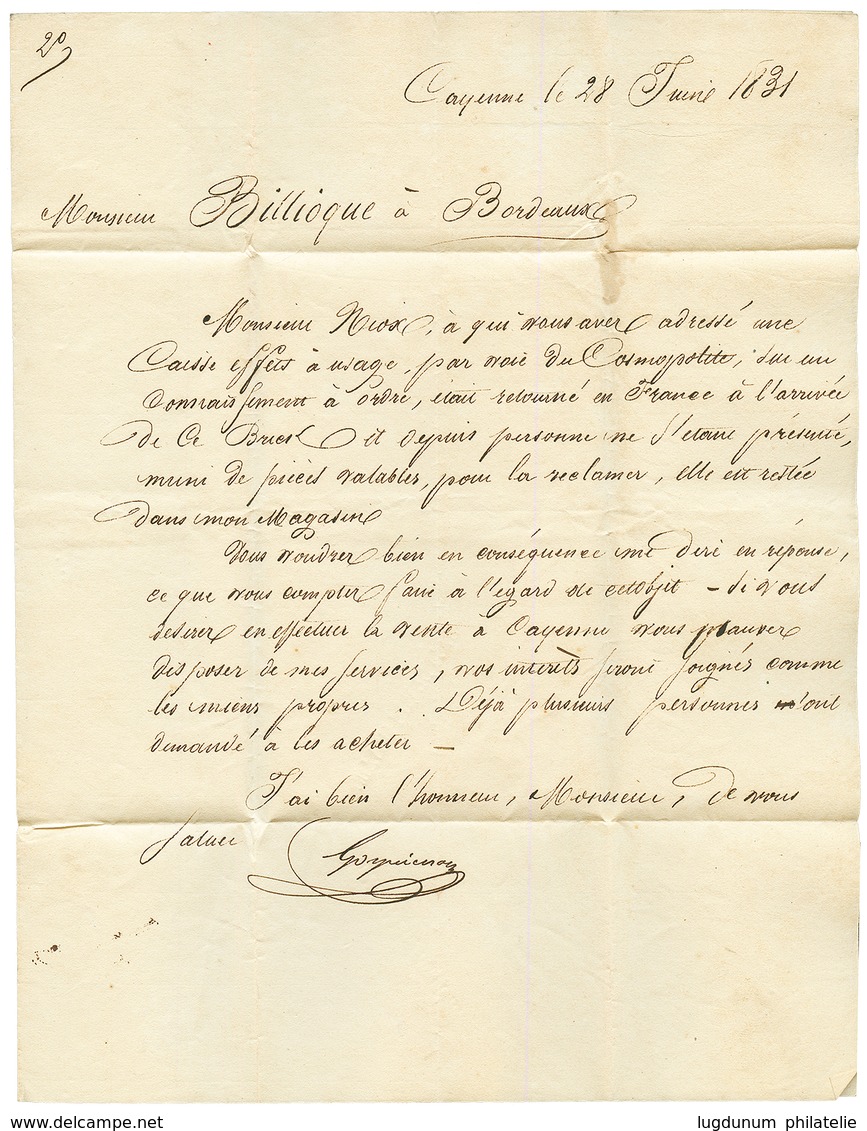 2º
Cayenne le 28 Juin 1831
Monsieur Billioque à Bordeaux
Monsieur Niox, à qui vous avez adressé une
Caisse effets à usage, par voie du Cosmopolite, sur un
Connaissement à ordre, était retourné en France à l'arrivée
de Ce Brick et depuis personne ne s'étant présenté,
muni de pièces valables, pour la reclamer, elle est restée
dans mon Magasin
Vous voudrez bien en conséquence me dire en réponse,
ce que vous comptez faire à l'égard de cet objet – si vous
desirez en effectuer la vente à Cayenne vous pouvez
disposer de mes services, vos intérêts seront soignés comme
les miens propres. Déjà plusieurs personnes m'ont
demandé à les acheter –
J'ai bien l'honneur, Monsieur, de vous
saluer
delcampe.net
lugdunum philatelie